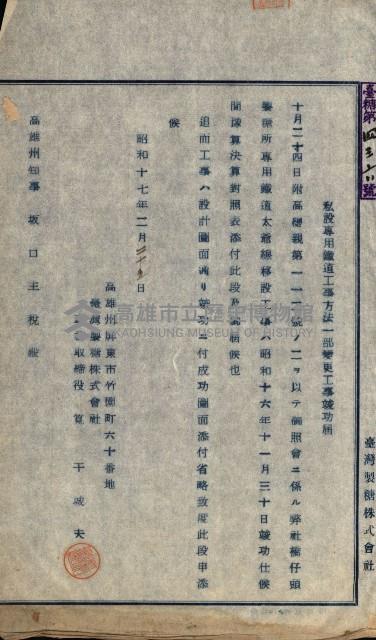 臺糖第四三六號
私設專用鐵道工事方法一部變更工事竣功屆
十月二十四日附高勸親第一一一號ノ二ヲ以テ御照會ニ係ル弊社橋仔頭
製糖所專用鐵道太爺線移設工事ハ昭和十六年十一月三十日竣功仕候
間豫算決算對照表添付此段及御屆候也
追而工事ハ設計圖面通リ竣功ニ付成功圖面添付省略致度此段申添
候
昭和十七年二月二十日
高雄州屏東市竹園町六十番地
臺灣製糖株式會社
取締役 筧 干城夫
高雄州知事 坂口主税殿
臺灣製糖株式會社
高雄市立歷史博物館
KAOHSIUNG MUSEUM OF HISTORY